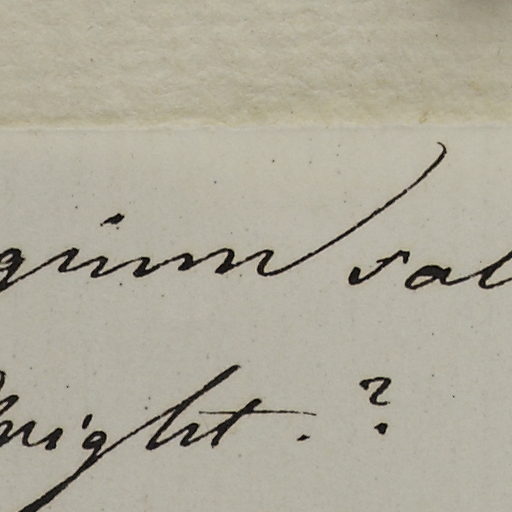 ginum sal
Knight. ?